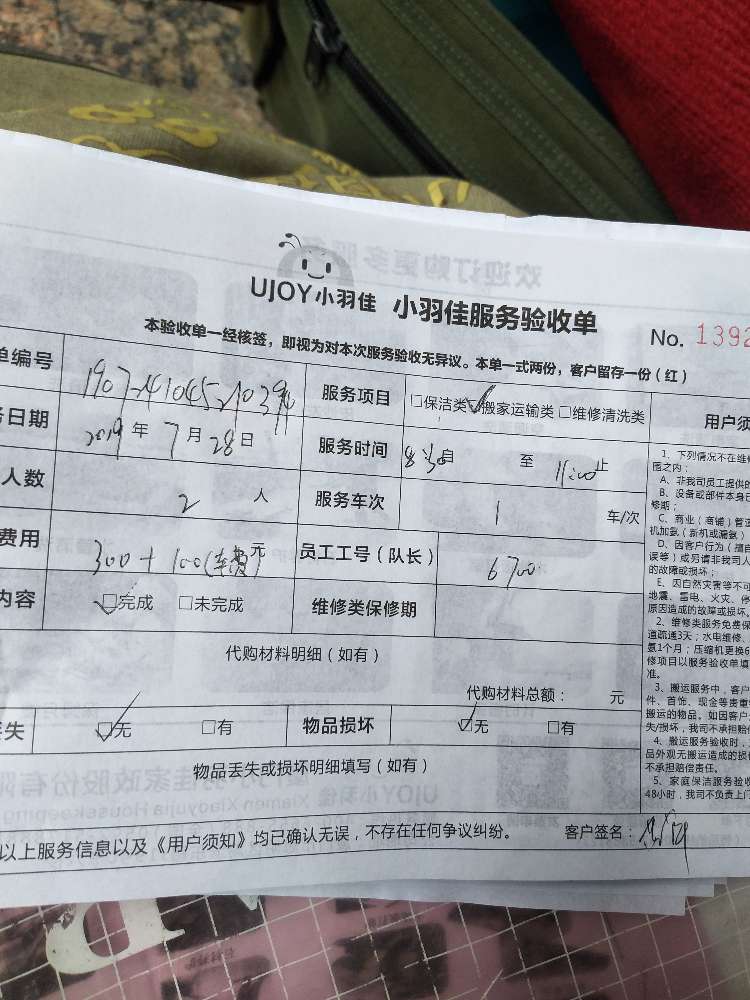 欢迎订购更多服
UJOY小羽佳 小羽佳服务验收单
No. 1392
本验收单一经核签，即视为对本次服务验收无异议。本单一式两份，客户留存一份（红）
单编号 服务项目 □保洁类 □搬家运输类 □维修清洗类 用户须
务日期 2019年7月28日 服务时间 8:30自 至 11:00止
人数 2人 服务车次 1 车/次
费用 300+100(车费)元 员工工号（队长） 6700
内容 □完成 □未完成 维修类保修期
代购材料明细（如有）
代购材料总额： 元
丢失 □无 □有 物品损坏 □无 □有
物品丢失或损坏明细填写（如有）
以上服务信息以及《用户须知》均已确认无误，不存在任何争议纠纷。 客户签名：
1、下列情况不在维修
围之内：
A、非我司员工提供的
B、设备或部件本身已
修期；
C、商业（商铺）管道
机加氨（新机或漏氨）
D、因客户行为（擅自
误等）或另请非我司人
的故障或损坏；
E、因自然灾害等不可
地震、雷电、火灾、停
原因造成的故障或损坏。
2、维修类服务免费保
道疏通3天；水电维修、
氨1个月；压缩机更换6
修项目以服务验收单填
准。
3、搬运服务中，客户
件、首饰、现金等贵重
搬运的物品。如因客户
失/损坏，我司不承担赔
4、搬运服务验收时，
品外观无搬运造成的损
不承担赔偿责任。
5、家庭保洁服务验收
48小时，我司不负责上门